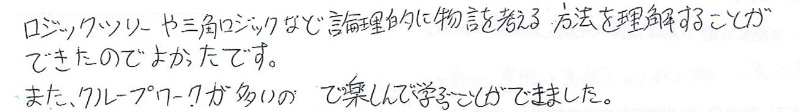 ロジックツリーや三角ロジックなど論理的に物語を考える方法を理解することが
できたのでよかったです。
また、クループワークが多いの で楽しんで学ぶことができました。